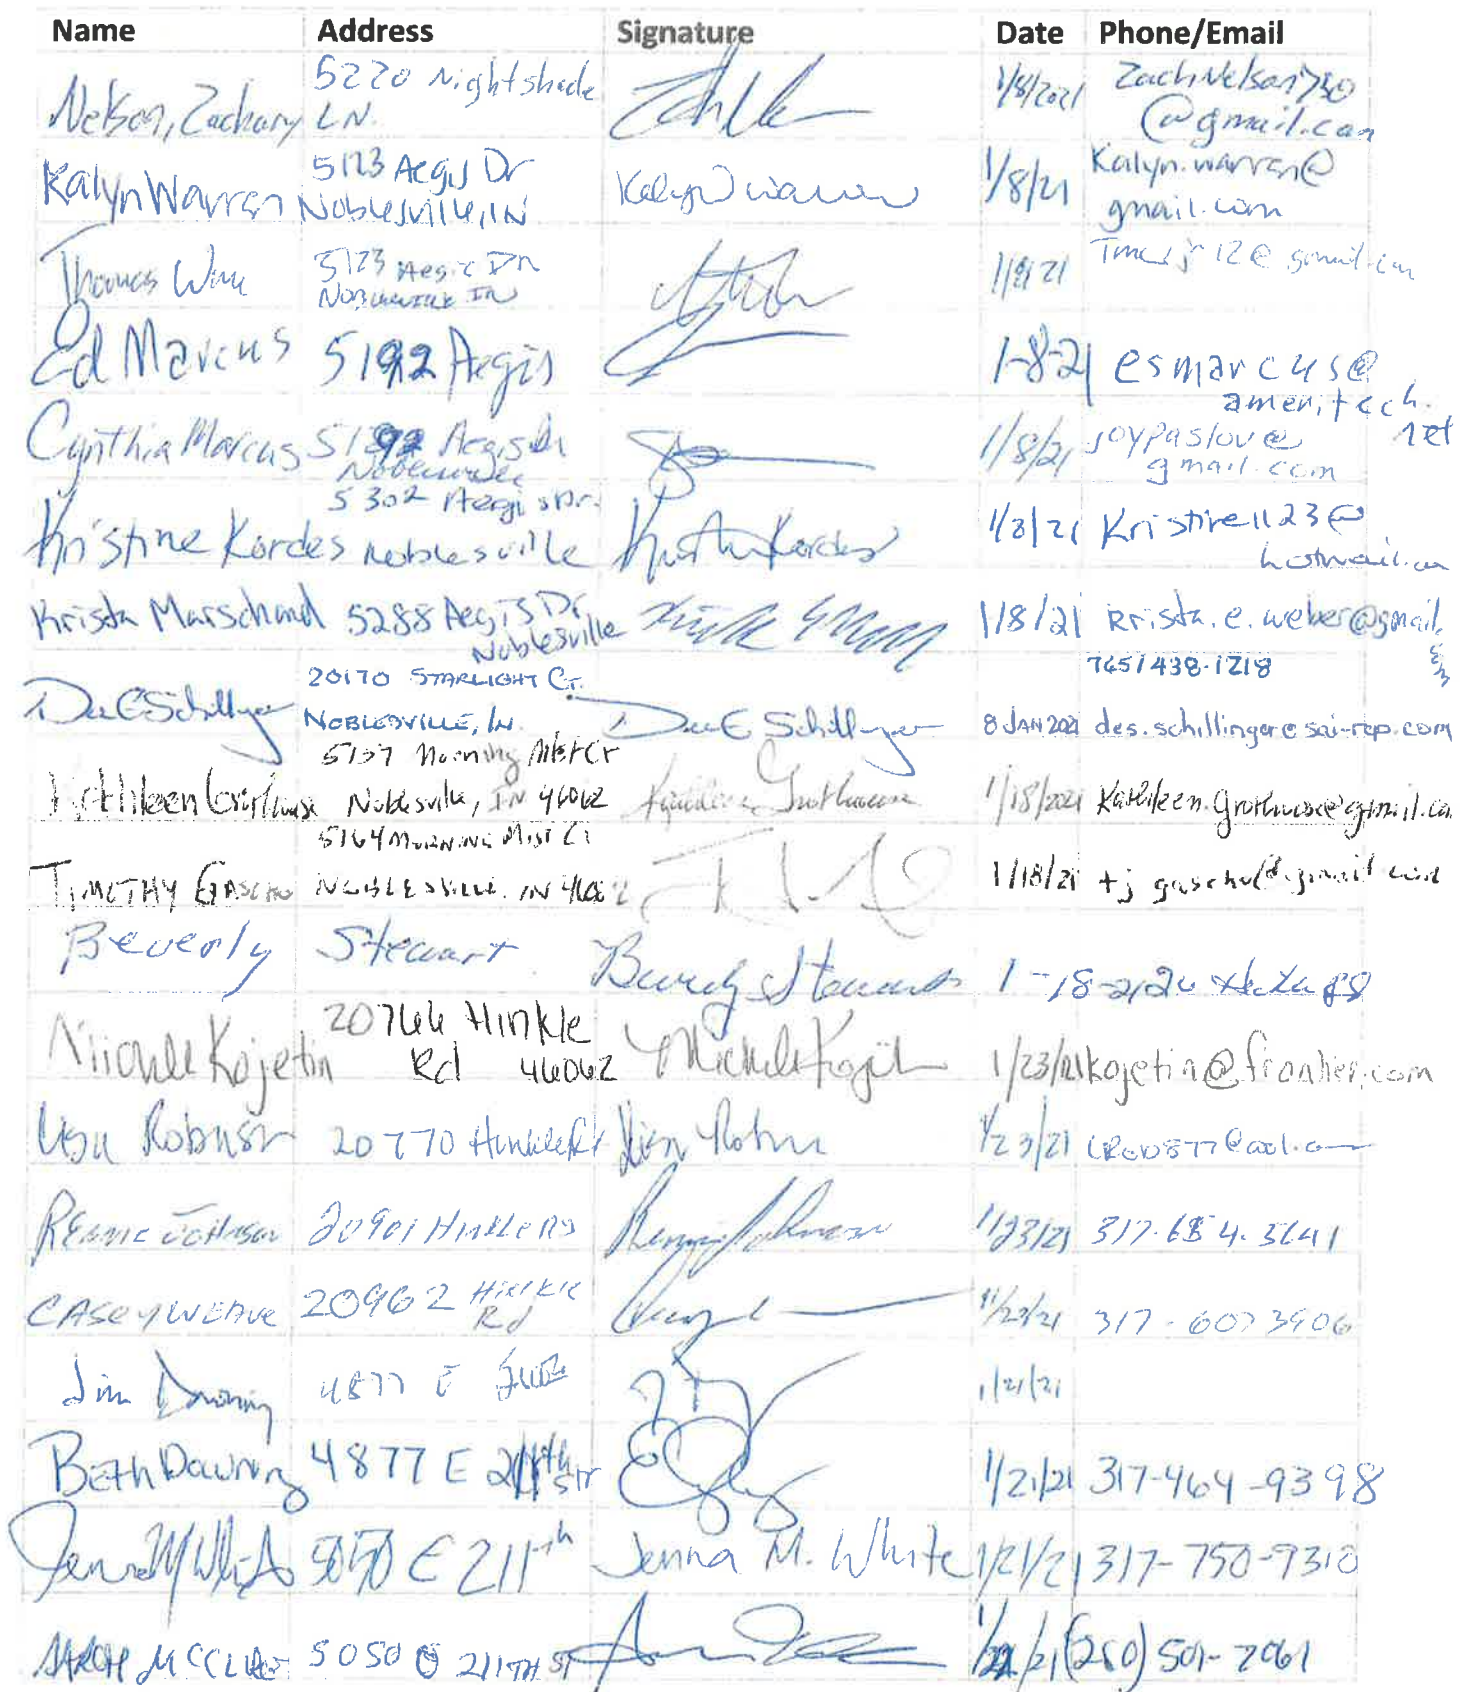 Name Address Signature Date Phone/Email
Nelson, Zachary 5220 Nightshade LN. 1/8/2021 ZachNelson730@gmail.com
Kalyn Warren 5123 Aegis Dr Noblesville, IN Kalyn Warren 1/8/21 Kalyn.warren@gmail.com
Thomas 5123 Aegis Dr Noblesville IN 1/8/21 @gmail.com
Ed Marcus 5192 Aegis 1-8-21 esmarcus@ameritech.net
Cynthia Marcus 5192 Aegis Dr Noblesville 1/8/21 joypaslov@gmail.com
Kristine Kordes 5302 Aegis Dr. Noblesville Kristine Kordes 1/8/21 Kristine1123@hotmail.com
Krista Marschand 5288 Aegis Dr Noblesville 1/8/21 Krista.e.weber@gmail.
Dee E Schillinger 20170 STARLIGHT CT. NOBLESVILLE, IN. Dee E Schillinger 8 JAN 2021 765/438-1218 des.schillinger@sai-rep.com
Kathleen Grothouse 5157 Morning Mist Ct Noblesville, IN 46062 Kathleen Grothouse 1/18/2021 Kathleen.Grothouse@gmail.com
TIMOTHY GASCHO 5164 MORNING MIST CT NOBLESVILLE IN 46062 1/18/21 tjgascho@gmail.com
Beverly Stewart Beverly Stewart 1-18-21
Michele Kojetin 20766 Hinkle Rd 46062 Michele Kojetin 1/23/21 kojetin@frontier.com
Lisa Robinson 20770 Hinkle Rd 1/23/21 LROB877@aol.com
Johnson 20901 Hinkle Rd Johnson 1/23/21 317-654-5641
CASEY WEAVER 20962 Hinkle Rd 1/23/21 317-607 3906
Jim Downing 4877 E 1/21/21
Beth Downing 4877 E 211th str 1/21/21 317-464-9398
Jenna M White 5050 E 211th Jenna M. White 1/21/21 317-750-9310
5050 E 211TH ST 1/21 (260) 501-2061